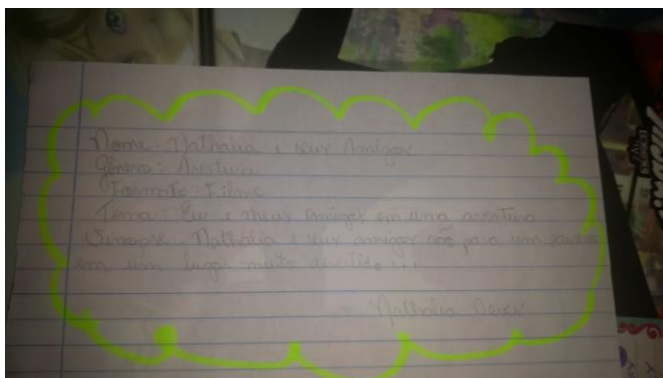 Nome: Nathália e seus Amigos
Gênero: Aventura
Formato: Filme
Tema: Eu e meus amigos em uma aventura
Sinopse: Nathália e seus amigos vão para um passeio
em um lugar muito
Nathália